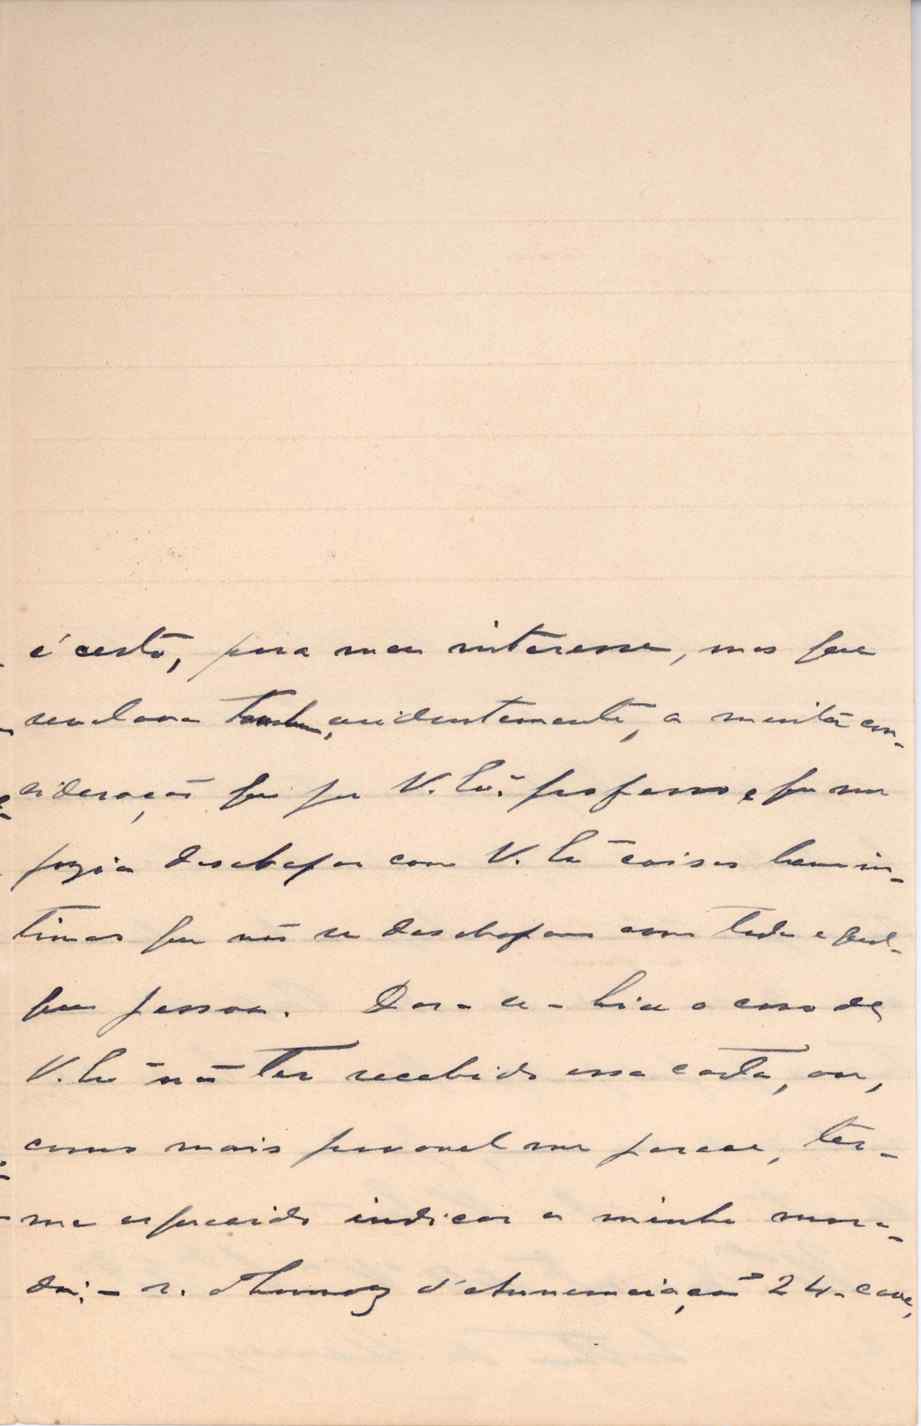 é certo, para meu interesse, mas que
revelava evidentemente, a muita con-
sideração que por V. Exª professo e que me
fazia desabafar com V. Exª coisas bem in-
timas que não se desabafam com toda e qual-
quer pessoa. Dar-se-hia o caso de
V. Exª não ter recebido essa carta, ou,
como mais provavel me parece, ter-
me esquecido indicar a minha mora-
da: - r. Thomaz d'Annunciação 24-cave,